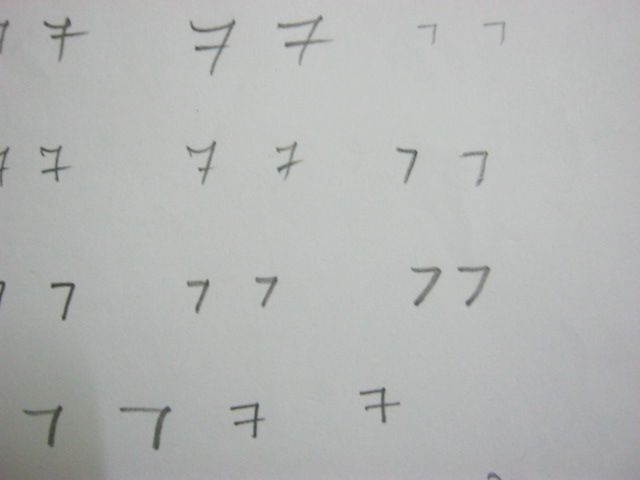 7 7 7 7 7 7
7 7 7 7 7 7
7 7 7 7 7 7
7 7 7 7